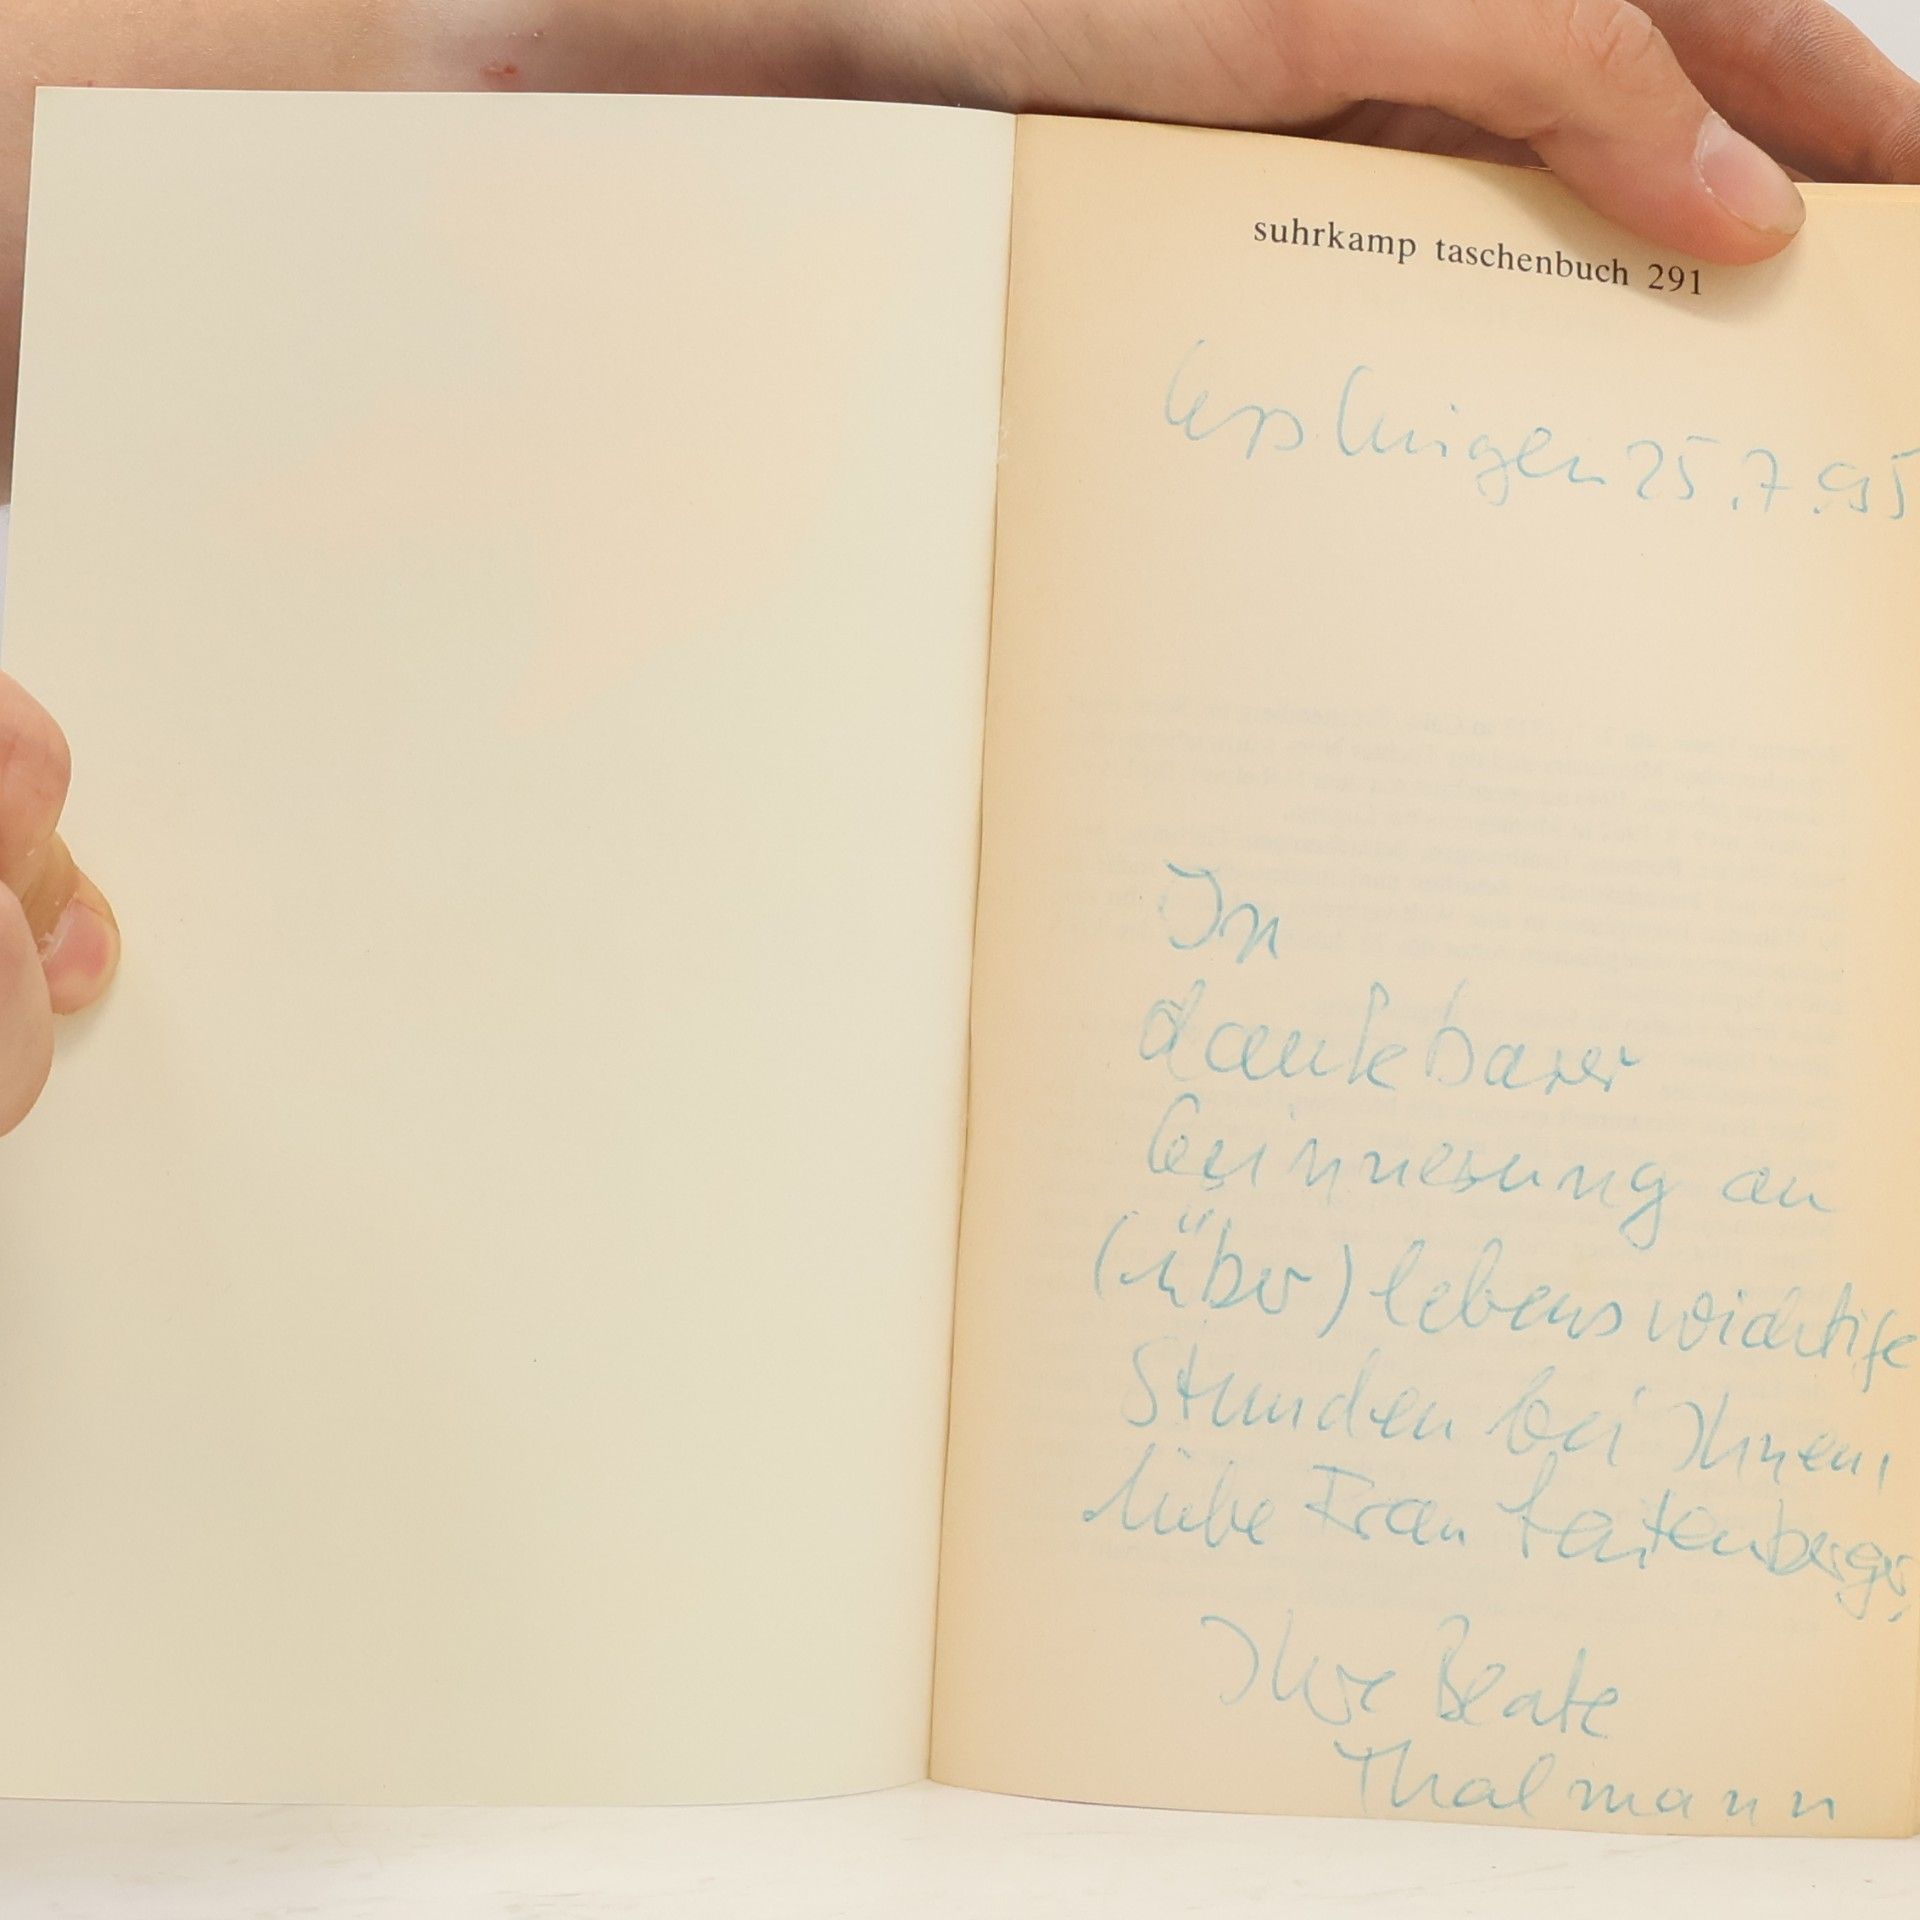 suhrkamp taschenbuch 291
25.7.95
In
dankbarer
Erinnerung an
(über)lebenswichtige
Stunden bei Ihnen,
liebe Frau
Ihre Beate
Thalmann